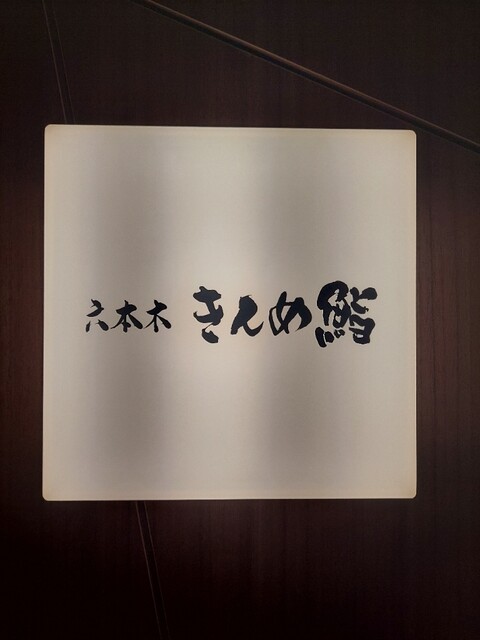 六本木 きんめ鮨